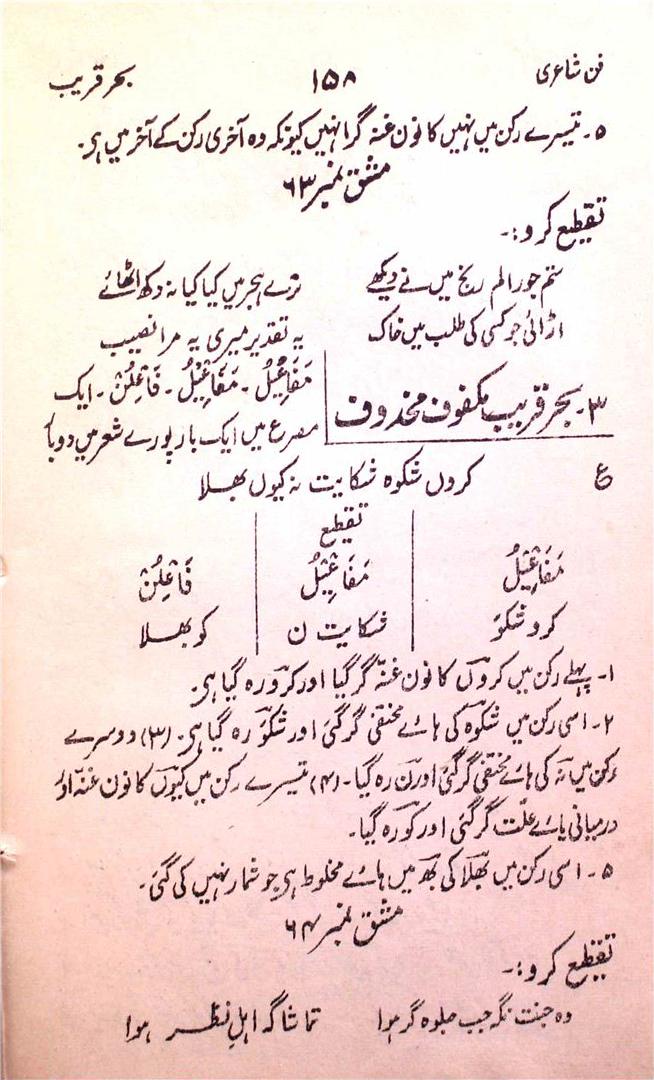 فن شاعری ۱۵۸ بحر قریب
۵۔ تیسرے رکن میں نہیں کا نون غنہ گرا نہیں کیونکہ وہ آخری رکن کے آخر میں ہی۔
مشق نمبر ۶۳
تقطیع کرو:۔
ستم جور الم رنج میں نے دیکھے ترے ہجر میں کیا کیا نہ دکھ اٹھائے
اڑائی جو کسی کی طلب میں خاک یہ تقدیر میری یہ مرا نصیب
۳۔ بحر قریب مکفوف محذوف مَفَاعِیْلُ۔ مَفَاعِیْلُ۔ فَاعِلُنْ۔ ایک
مصرع میں ایک بار پورے شعر میں دوبار
ع کروں شکوہ شکایت نہ کیوں بھلا
تقطیع
مَفَاعِیْلُ مَفَاعِیْلُ فَاعِلُنْ
کرو شکوَ شکایت ن کو بھلا
۱۔ پہلے رکن میں کروں کا نون غنہ گر گیا اور کرو رہ گیا ہی۔
۲۔ اسی رکن میں شکوہ کی ہائے مختفی گر گئی اور شکوَ رہ گیا ہی۔ (۳) دوسرے
رکن میں نہ کی ہائے مختفی گر گئی اور ن رہ گیا۔ (۴) تیسرے رکن میں کیوں کا نون غنہ اور
درمیانی یائے علّت گر گئی اور کو رہ گیا۔
۵۔ اسی رکن میں بھلا کی بھ میں ہائے مخلوط ہی جو شمار نہیں کی گئی۔
مشق نمبر ۶۴
تقطیع کرو:۔
وہ جنت نگہ جب جلوہ گر ہوا تماشا گہ اہلِ نظر ہوا